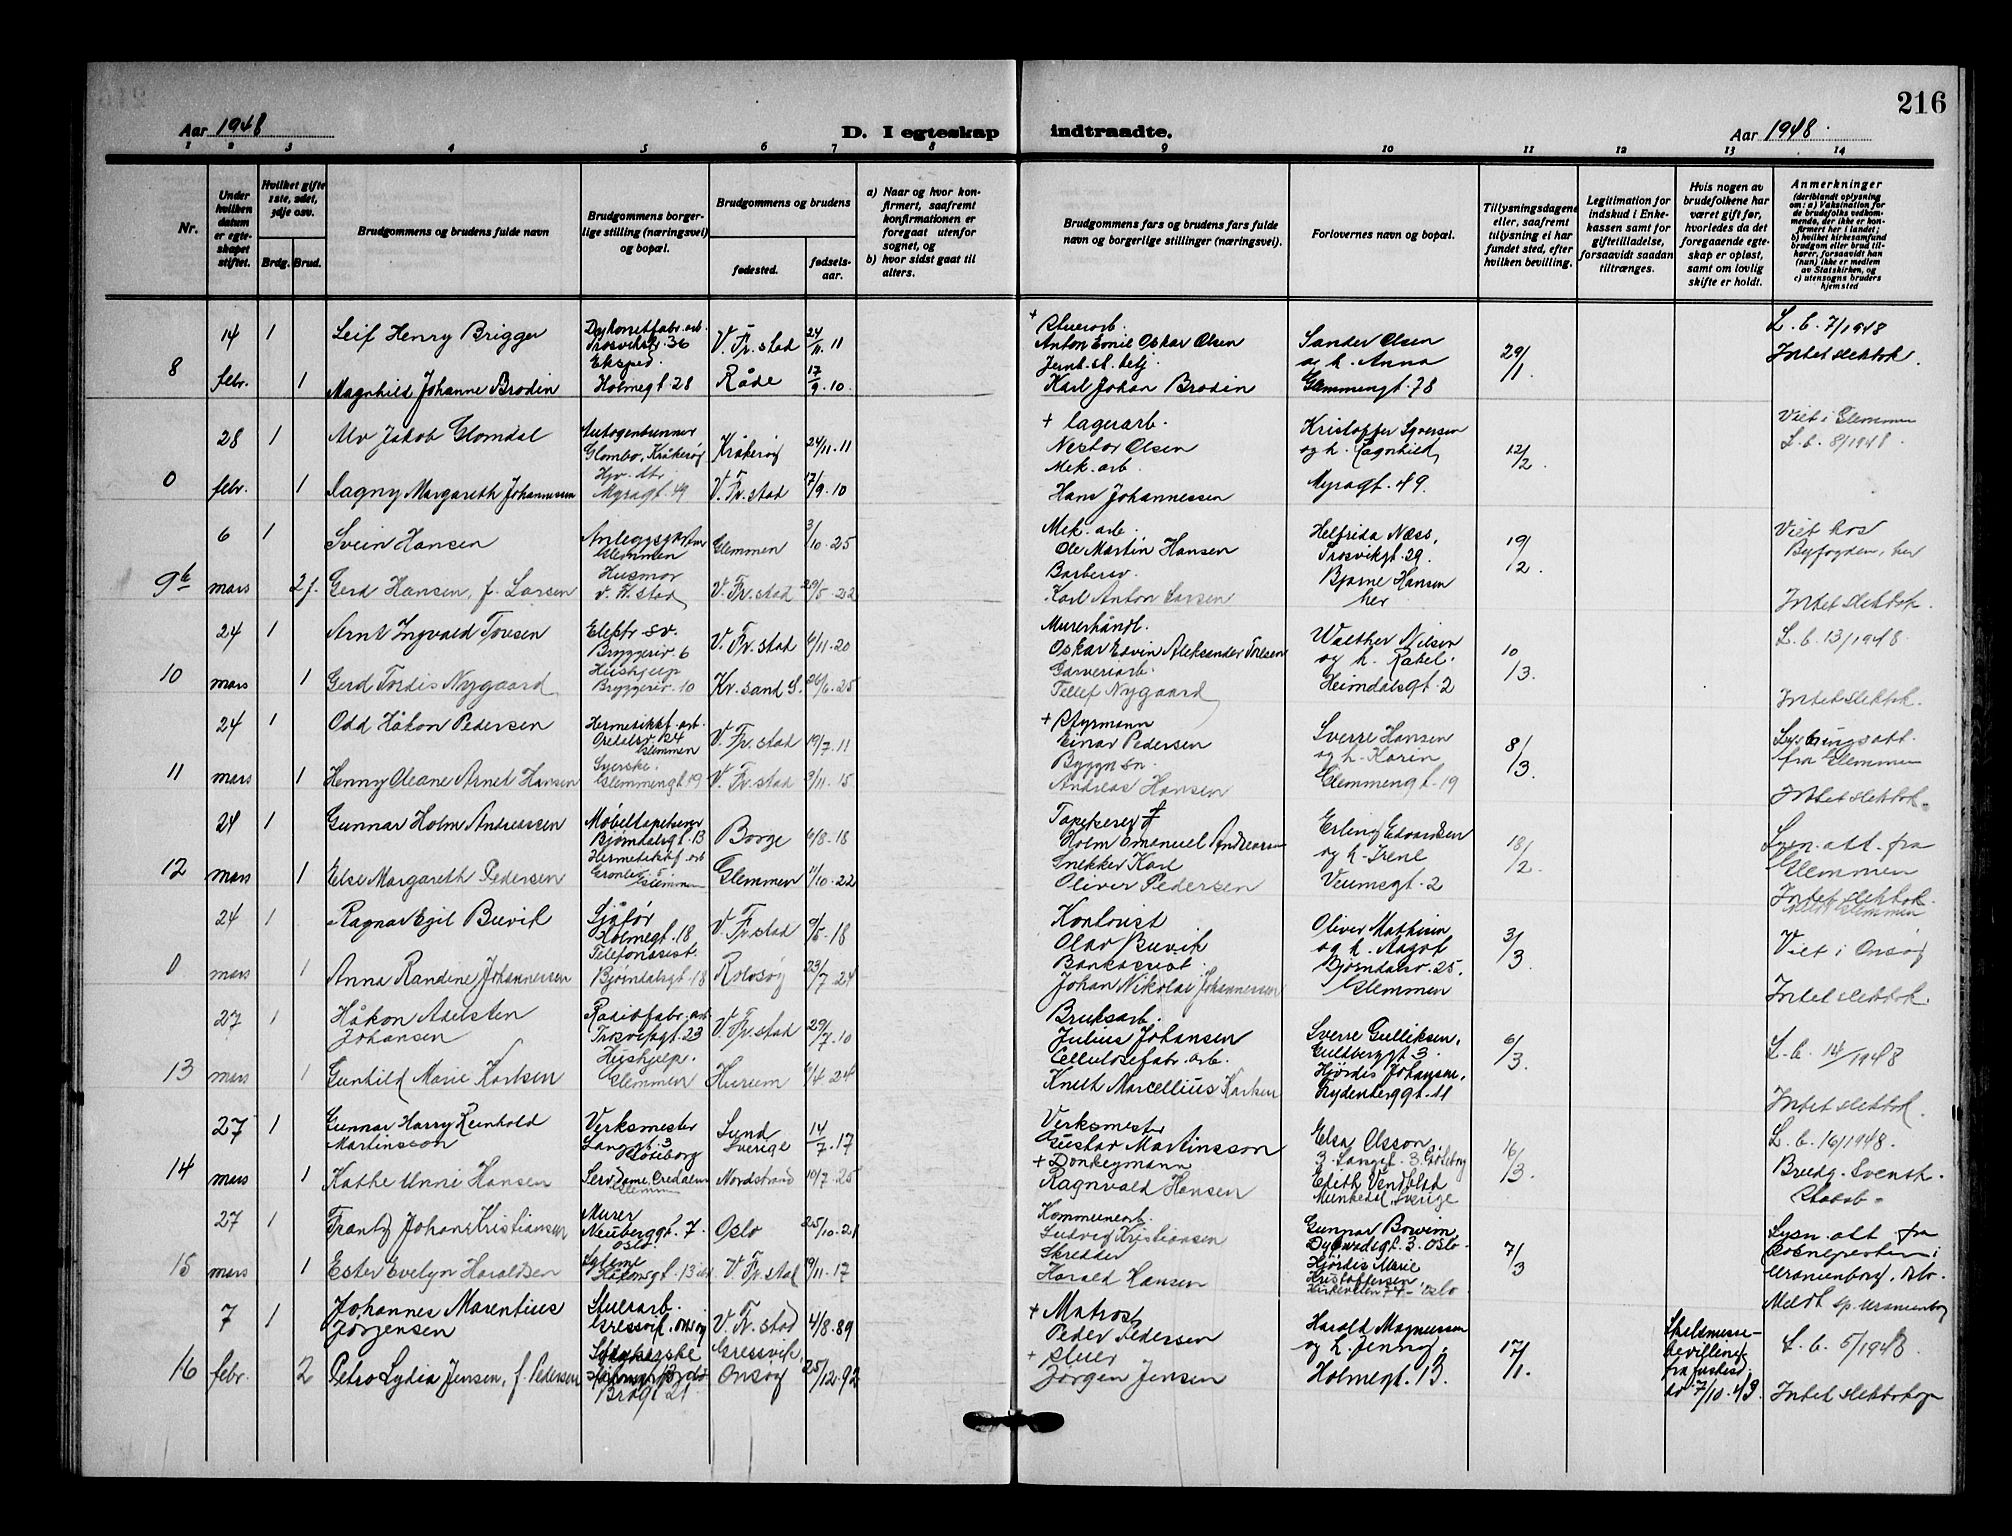 216
Aar 1948
D. I egteskap indtraadte.
Aar 1948.
1 2 3 4 5 6 7 8 9 10 11 12 13 14
Nr.
Under hvilken datum er egteskapet stiftet.
Hvilket gifte 1ste, 2det, 3dje osv.
Brdg. Brud.
Brudgommens og brudens fulde navn
Brudgommens borgerlige stilling (næringsvei) og bopæl.
Brudgommens og brudens
fødested.
fødselsaar.
a) Naar og hvor konfirmert, saafremt konfirmationen er foregaat utenfor sognet, og
b) hvor sidst gaat til alters.
Brudgommens fars og brudens fars fulde navn og borgerlige stillinger (næringsvei).
Forlovernes navn og bopæl.
Tillysningsdagene eller, saafremt tillysning ei har fundet sted, efter hvilken bevilling.
Legitimation for indskud i Enkekassen samt for giftetilladelse, forsaavidt saadan tiltrænges.
Hvis nogen av brudefolkene har været gift før, hvorledes da det foregaaende egteskap er opløst, samt om lovlig skifte er holdt.
Anmerkninger (deriblandt oplysning om: a) Vaksination for de brudefolks vedkommende, der ikke er konfirmert her i landet; b) hvilket kirkesamfund brudgom eller brud tilhører, forsaavidt han (hun) ikke er medlem av Statskirken, og c) utensogns bruders hjemsted
8 14 febr. 1 Leif Henry Brigger Trosviksgt. 36 V. Fr.stad 24/11. 11
+ Stuerarb. Anton Emil Oskar Olsen Sander Olsen og h. Anna Glemmengt. 78 29/1 L. b. 7/1948
1 Magnhild Johanne Brodin Eksped. Holmegt. 28 Råde 17/9. 10
Jernb.st. betj. Karl Johan Brodin Intet slektsk.
0 28 febr. 1 Alv Jakob Glomdal Glombo, Kråkerøy Kråkerøy 24/11. 11
+ lagerarb. Nestor Olsen Kristoffer Syversen og h. Ragnhild, Myragt. 49. 12/2. Viet i Glemmen L. b. 8/1948.
1 Dagny Margareth Johannessen Myragt. 49 V. Fr.stad 17/9. 10
Mek. arb. Hans Johannessen
9b 6 mars 1 Svein Hansen Glemmen Glemmen 3/10. 25
Mek. arb. Ole Martin Hansen Helfrida Næss, Trosvikgt. 29. 19/2. Viet hos Byfogden, her
2 f. Gerd Hansen, f. Larsen Husmor V. Fr.stad V. Fr.stad 29/5. 22
Karl Anton Larsen Bjarne Hansen her Intet slektsk.
10 24 mars 1 Arnt Ingvald Torsen Bryggeriv. 6 V. Fr.stad 6/11. 20
Murerhåndl. Oskar Edvin Aleksander Torsen Walther Nilsen og h. Rakel. Heimdalsgt. 2 10/3. L. b. 13/1948.
1 Gerd Tordis Nygaard Hushjelp Bryggeriv. 10 Kr.sand S. 26/6. 25
Garveriarb. Tellef Nygaard Intet slektsk.
11 24 mars 1 Odd Håkon Pedersen Hermetikkf. arb. Glemmen V. Fr.stad 19/7. 11
+ Styrmann Einar Pedersen Sverre Hansen og h. Karin Glemmengt. 19 8/3. Lysningsatt. fra Glemmen
1 Henny Oleane Arnet Hansen Syerske. Glemmengt. 19 V. Fr.stad 3/11. 15
Byggm.sn. Andreas Hansen Intet slektsk.
12 24 mars 1 Gunnar Holm Andreassen Møbeltapetserer Bjørndalsgt. 13 Borge 6/8. 18
Tapetserer + Holm Emanuel Andreassen Erling Edvardsen og h. Irene Veumsgt. 2 18/2. att. fra Glemmen
1 Else Margareth Pedersen Hermetikkf. arb. Glemmen Glemmen 11/10. 22
Snekker Karl Oliver Pedersen Intet slektsk.
0 24 mars 1 Ragnar Egil Buvik Sjåfør Holmegt. 18 V. Fr.stad 9/5. 18
Kontorist Olav Buvik Oliver Mathisen og h. Aagot Bjørndalsv. 25. Glemmen 3/3. Viet i Onsøy
1 Anna Randine Johannessen Telefonassist. Bjørndalsgt. 18 Rolvsøy 23/7. 24
Johan Nikolai Johannessen Intet slektsk.
13 27 mars 1 Håkon Adelsten Johansen Radiofabr. arb. Trosvikgt. 23 V. Fr.stad 29/7. 10
Bruksarb. Julius Johansen Sverre Gulliksen, Guldberggt. 3. 6/3. L. b. 14/1948
1 Gunhild Marie Karlsen Hushjelp. Glemmen Hurum 6/4. 24
Cellulosefabr. arb. Knut Marcellius Karlsen Hjørdis Johansen, Rydenberggt. 11 Intet slektsk.
14 27 mars 1 Gunnar Harry Reinhold Martinsson Verksmester Langgt. 3 Gøteborg Lund Sverige 14/7. 17
Verksmester Gustav Martinsson Elsa Olsson 3. Langgt. 3. Gøteborg 16/3. L. b. 16/1948. Brudg. svensk. Statsb.
1 Kathe Unni Hansen Glemmen Nordstrand 10/7. 25
+ Donkeymann Ragnvald Hansen Edith Vendblad Munkedal Sverige
15 27 mars 1 Frantz Johan Kristiansen Murer Neuberggt. 7. Oslo Oslo 25/10. 21
Kommunearb. Ludvig Kristiansen Gunnar Borvim Dybwadsgt. 3. Oslo. 7/3 Lysn. att. fra Sognepresten i Uranienborg, Oslo.
1 Ester Evelyn Haraldsen V. Fr.stad 19/11. 17
Skredder Harald Hansen Hjørdis Marie Kristoffersen, Kirkeveien 74. Oslo Meldt sp. Uranienborg
16 7 febr. 1 Johannes Marentius Jørgensen Stuerarb. Gressvik, Onsøy V. Fr. stad 4/8. 89
+ Matros Peder Pedersen Harald Magnussen og h. Jenny, Holmegt. 13. 17/1. Skilsmissebevilling fra 7/10. 43. L. b. 5/1948.
2 Petra Lydia Jensen, f. Pedersen Gressvik, Onsøy 25/12. 92
+ Stuer Jørgen Jensen Intet slektskap